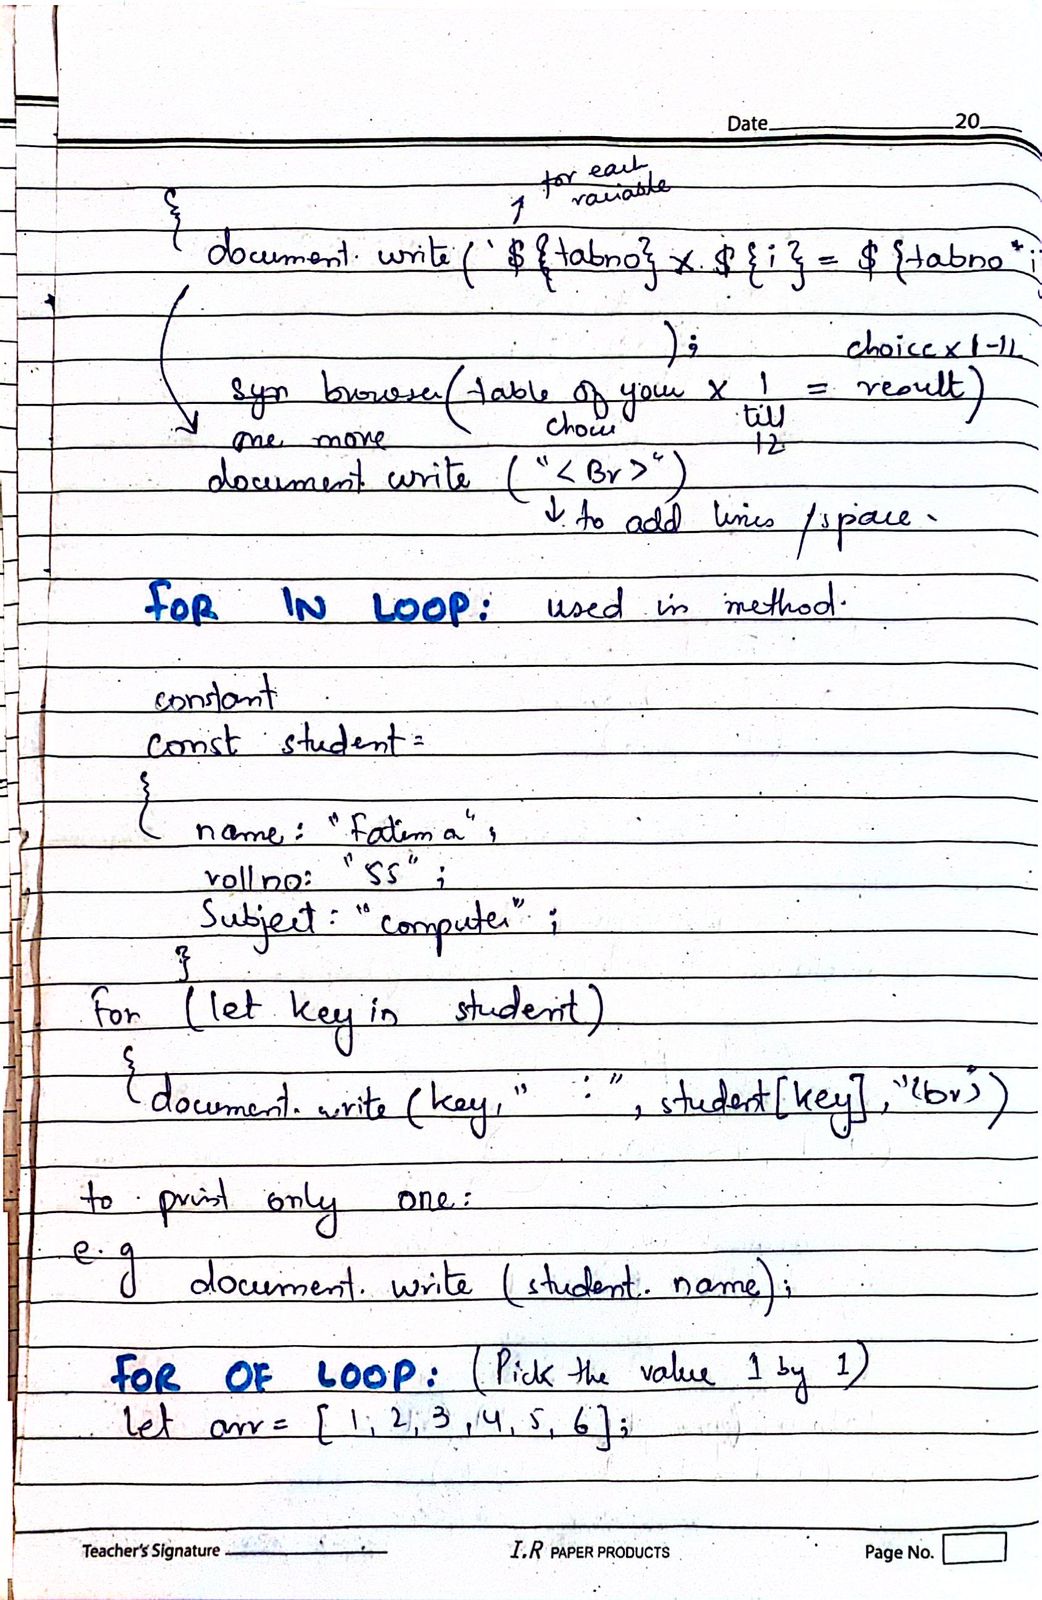 Date 20
for each
variable
{
document. write ( `${tabno} x ${i} = ${tabno*i
);
choice x 1-12
syn browser (table of your x 1 = result)
choice till
12
one more
document. write ("<Br>")
↓ to add lines / space.
FOR IN LOOP: used in method.
constant
const student =
{
name: "Fatima";
rollno: "55";
Subject: "computer";
}
for (let key in student)
{
document. write (key, " :", student[key], "(br>")
to print only one:
e.g
document. write (student. name);
FOR OF LOOP: (Pick the value 1 by 1)
let arr = [1, 2, 3, 4, 5, 6];
Teacher's Signature
I.R PAPER PRODUCTS
Page No.